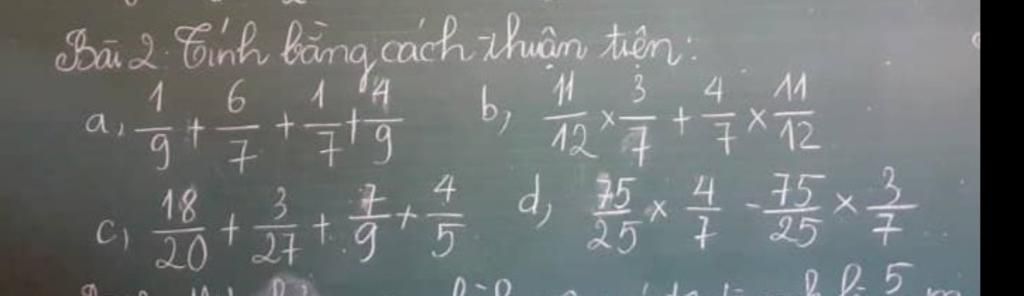 Bài 2. Tính bằng cách thuận tiện:
a, 1/9 + 6/7 + 1/7 + 4/9 b, 11/12 × 3/7 + 4/7 × 11/12
c, 18/20 + 3/27 + 7/9 + 4/5 d, 75/25 × 4/7 - 75/25 × 3/7